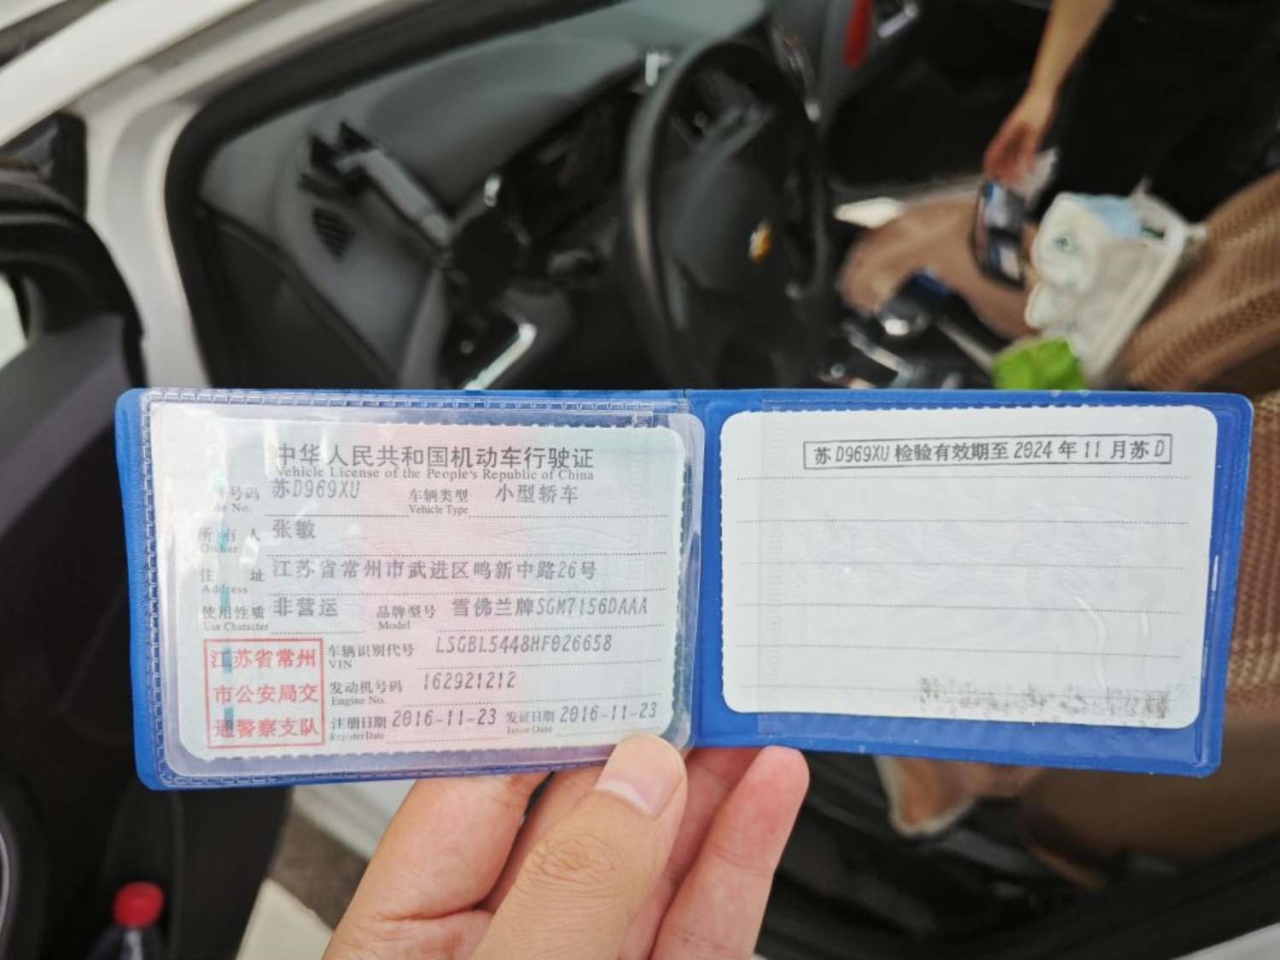 中华人民共和国机动车行驶证
Vehicle License of the People's Republic of China
号码 苏D969XU 车辆类型 小型轿车
No. Vehicle Type
所有人 张敏
Owner
住址 江苏省常州市武进区鸣新中路26号
Address
使用性质 非营运 品牌型号 雪佛兰牌SGM7156DAAA
Use Character Model
江苏省常州
市公安局交
通警察支队
车辆识别代号 LSGBL5448HF026658
VIN
发动机号码 162921212
Engine No.
注册日期 2016-11-23 发证日期 2016-11-23
Register Date Issue Date
苏D969XU检验有效期至2024年11月苏D